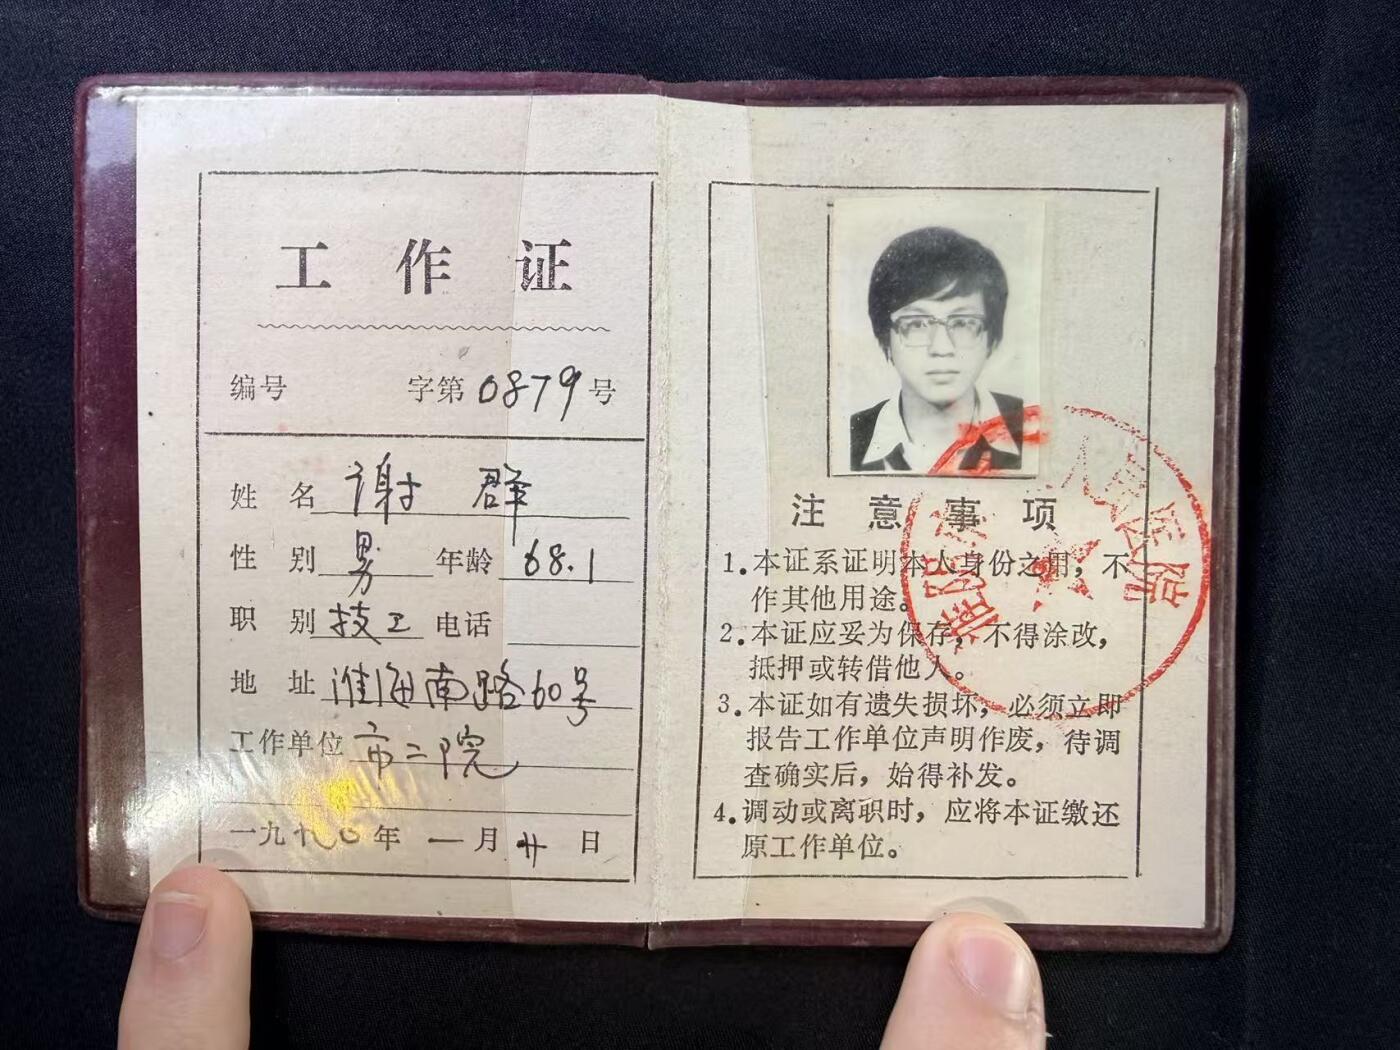 工作证
编号 字第0879号
姓名 谢群
性别 男 年龄 68.1
职别 技工 电话
地址 淮海南路60号
工作单位 市二院
一九九〇年一月廿日
注意事项
1.本证系证明本人身份之用，不
作其他用途。
2.本证应妥为保存，不得涂改，
抵押或转借他人。
3.本证如有遗失损坏，必须立即
报告工作单位声明作废，待调
查确实后，始得补发。
4.调动或离职时，应将本证缴还
原工作单位。
人民医院